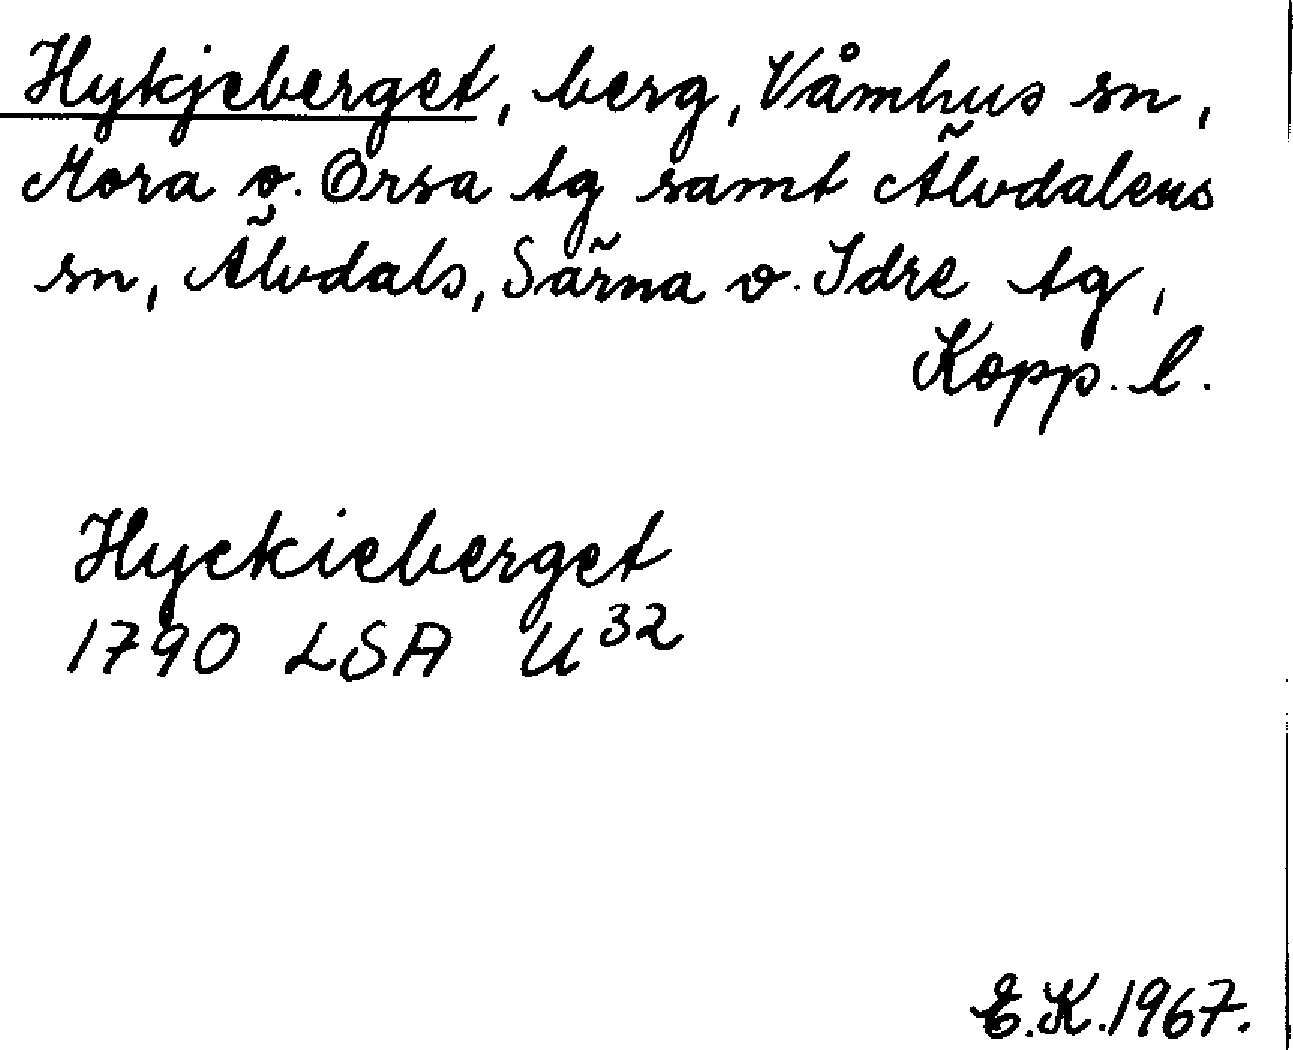 Hykjeberget, berg, Våmhus sn,
Mora o. Orsa tg samt Älvdalens
sn, Älvdals, Särna o. Idre tg,
Kopp. l.
Hyckieberget
1790 LSA U³²
E.K.1967.